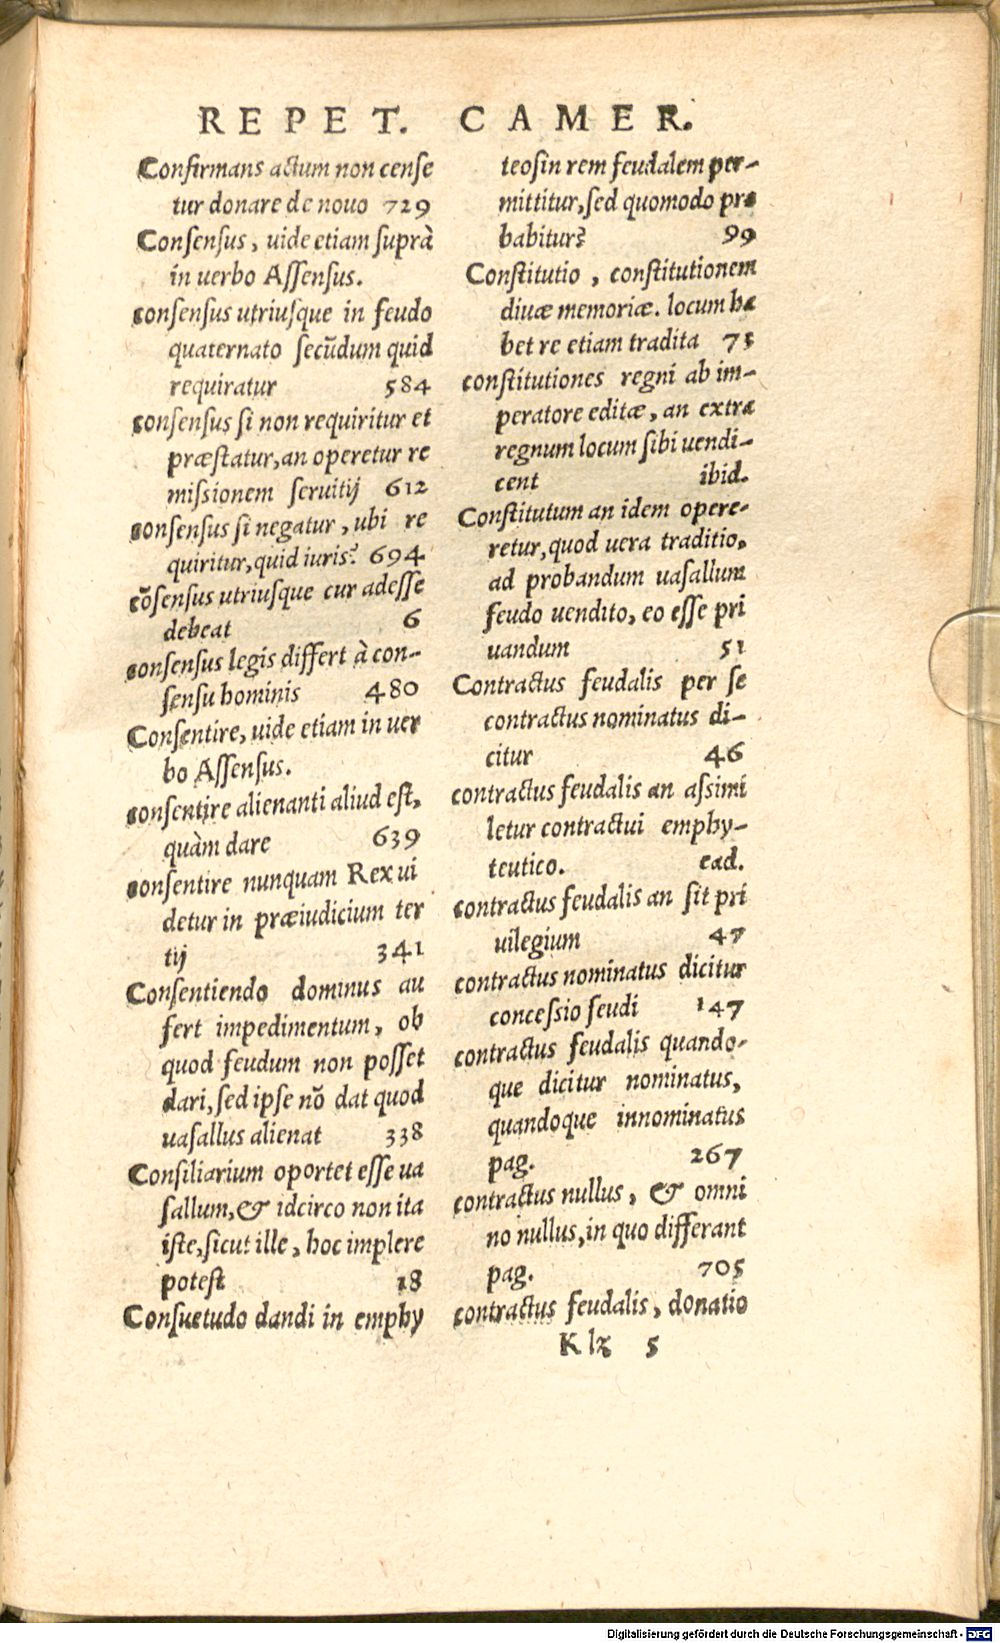 REPET. CAMER.
Confirmans actum non cense
tur donare de nouo 729
Consensus, uide etiam suprà
in uerbo Assensus.
consensus utriusque in feudo
quaternato secũdum quid
requiratur 584
consensus si non requiritur et
præstatur, an operetur re
missionem seruitij 612
consensus si negatur, ubi re
quiritur, quid iuris? 694
cõsensus utriusque cur adesse
debeat 6
consensus legis differt à con-
sensu hominis 480
Consentire, uide etiam in uer
bo Assensus.
consentire alienanti aliud est,
quàm dare 639
consentire nunquam Rex ui
detur in præiudicium ter
tij 341
Consentiendo dominus au
fert impedimentum, ob
quod feudum non posset
dari, sed ipse nõ dat quod
uasallus alienat 338
Consiliarium oportet esse ua
sallum, & idcirco non ita
iste, sicut ille, hoc implere
potest 18
Consuetudo dandi in emphy
teosin rem feudalem per-
mittitur, sed quomodo pro
babitur? 99
Constitutio, constitutionem
diuæ memoriæ. locum ha
bet re etiam tradita 75
constitutiones regni ab im-
peratore editæ, an extra
regnum locum sibi uendi-
cent ibid.
Constitutum an idem opere-
retur, quod uera traditio,
ad probandum uasallum
feudo uendito, eo esse pri
uandum 51
Contractus feudalis per se
contractus nominatus di-
citur 46
contractus feudalis an assimi
letur contractui emphy-
teutico. ead.
contractus feudalis an sit pri
uilegium 47
contractus nominatus dicitur
concessio feudi 147
contractus feudalis quando-
que dicitur nominatus,
quandoque innominatus
pag. 267
contractus nullus, & omni
no nullus, in quo differant
pag. 705
contractus feudalis, donatio
Klz 5
Digitalisierung gefördert durch die Deutsche Forschungsgemeinschaft - DFG